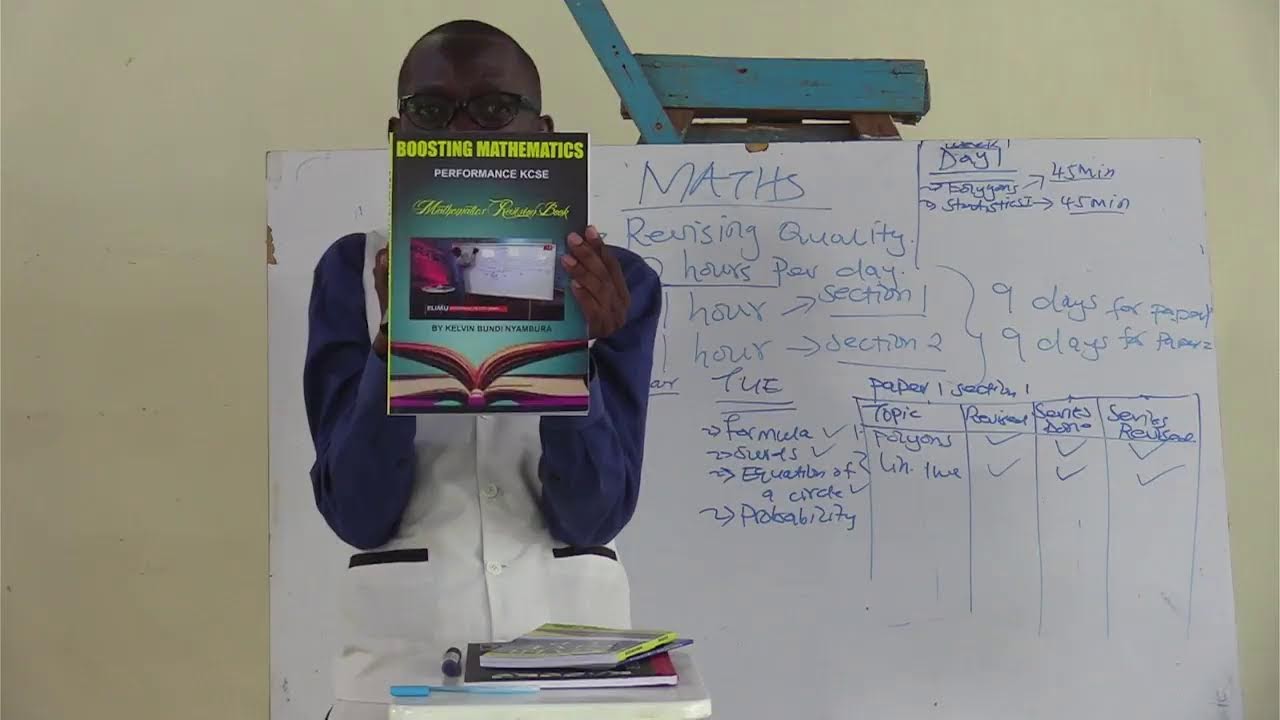 BOOSTING MATHEMATICS
PERFORMANCE KCSE
Mathematics Revision Book
ELIMU
BY KELVIN BUNDI NYAMBURA
MATHS
Revising Quality.
hours per day.
1 hour → section 1
1 hour → section 2
9 days for paper 1
9 days for Paper 2
week 1
Day 1
→ Polygons → 45 min
→ Statistics I → 45 min
TUE
→ formula ✓
→ surds ✓
→ Equation of
a circle ✓
→ Probability
paper 1 section 1
Topic Revised Series Done Series Revised
Polyons ✓ ✓ ✓
Lin. ✓ ✓ ✓